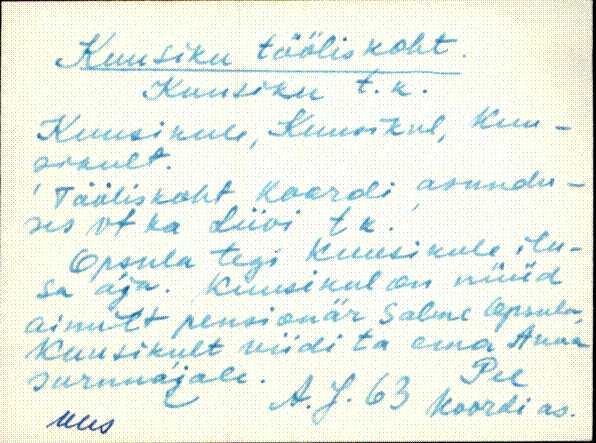 Kuusiku tööliskoht.
Kuusiku t.k.
Kuusikule, Kuusikul, Kuu-
sikult.
Tööliskoht Koordi asundu-
ses vt ka Liivi t k.
Opsula tegi Kuusikule ilu-
sa aja. Kuusikul on nüüd
ainult pensionär Salme Opsula,
Kuusikult viidi ta ema Anna
surnuajale.
A. J. 63 Pee
Koordi as.
uus